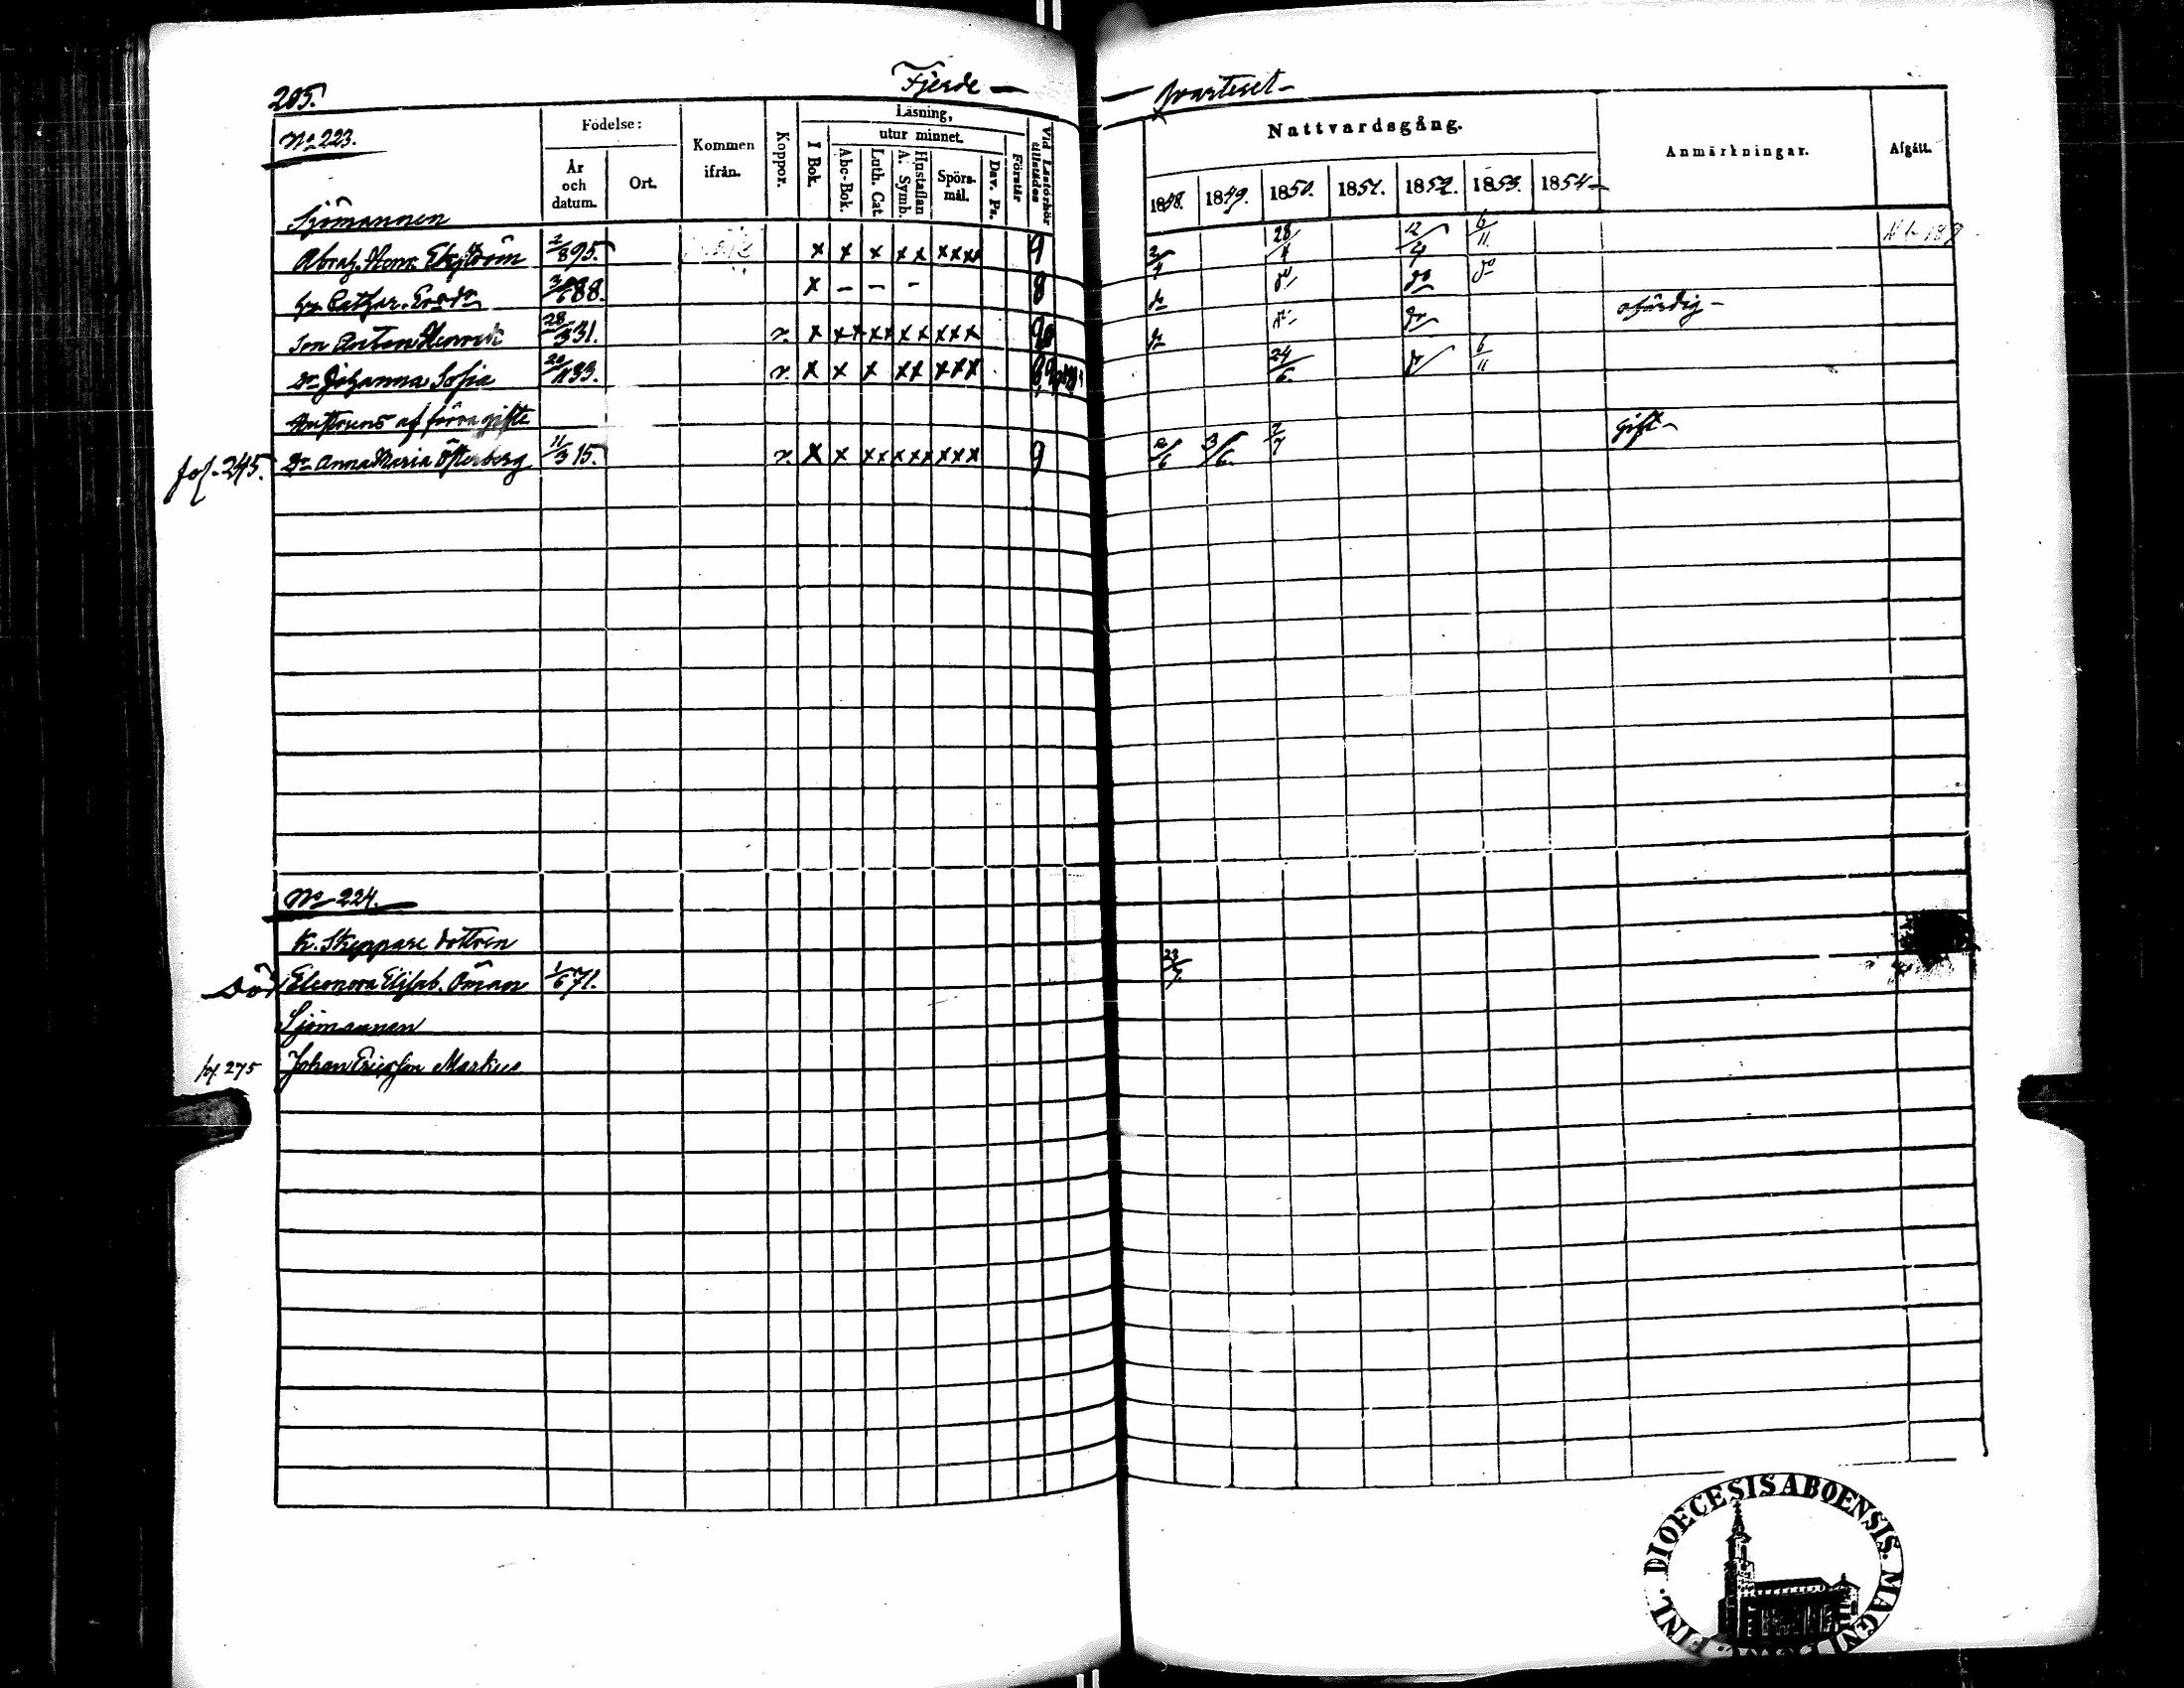 205.
Fjerde — — qvarteret
No 223.
Födelse:
År och datum.
Ort.
Kommen ifrån.
Koppor.
Läsning,
I Bok.
utur minnet.
Abc-Bok.
Luth. Cat.
Hustaflan A. Symb.
Spörs-mål.
Dav. Ps.
Förstår
Vid Läsförhör tillstädes
Nattvardsgång.
1848. 1849. 1850. 1851. 1852. 1853. 1854
Anmärkningar.
Afgått.
Sjömannen
Abrah. Henr. Ekström 2/8 95. x x x x x x x x x 9 2/4 28/4 12/4 6/11
hu Cathar. 88. x – – – 8 do do do do
Son Anton Henrik 28/3 31. v. x x x x x x x x x x do do do ofärdig
Dr Johanna Sofia 20/11 33. v. x x x x x x x x 24/6. do 6/11
Hustruns af förra gifte
fol. 245. Dr Anna Maria Österberg 11/3 15. v. x x x x x x x x x x 9 2/6 3/6. 7/7 gift
No 224.
K. Skeppare dottren
Död Eleonora Elisab. Öman 1/6 71. 23/7
Sjömannen
fol. 275 Johan Ericsson Markus
DIOECESIS ABOENSIS. MAGNI FINL.